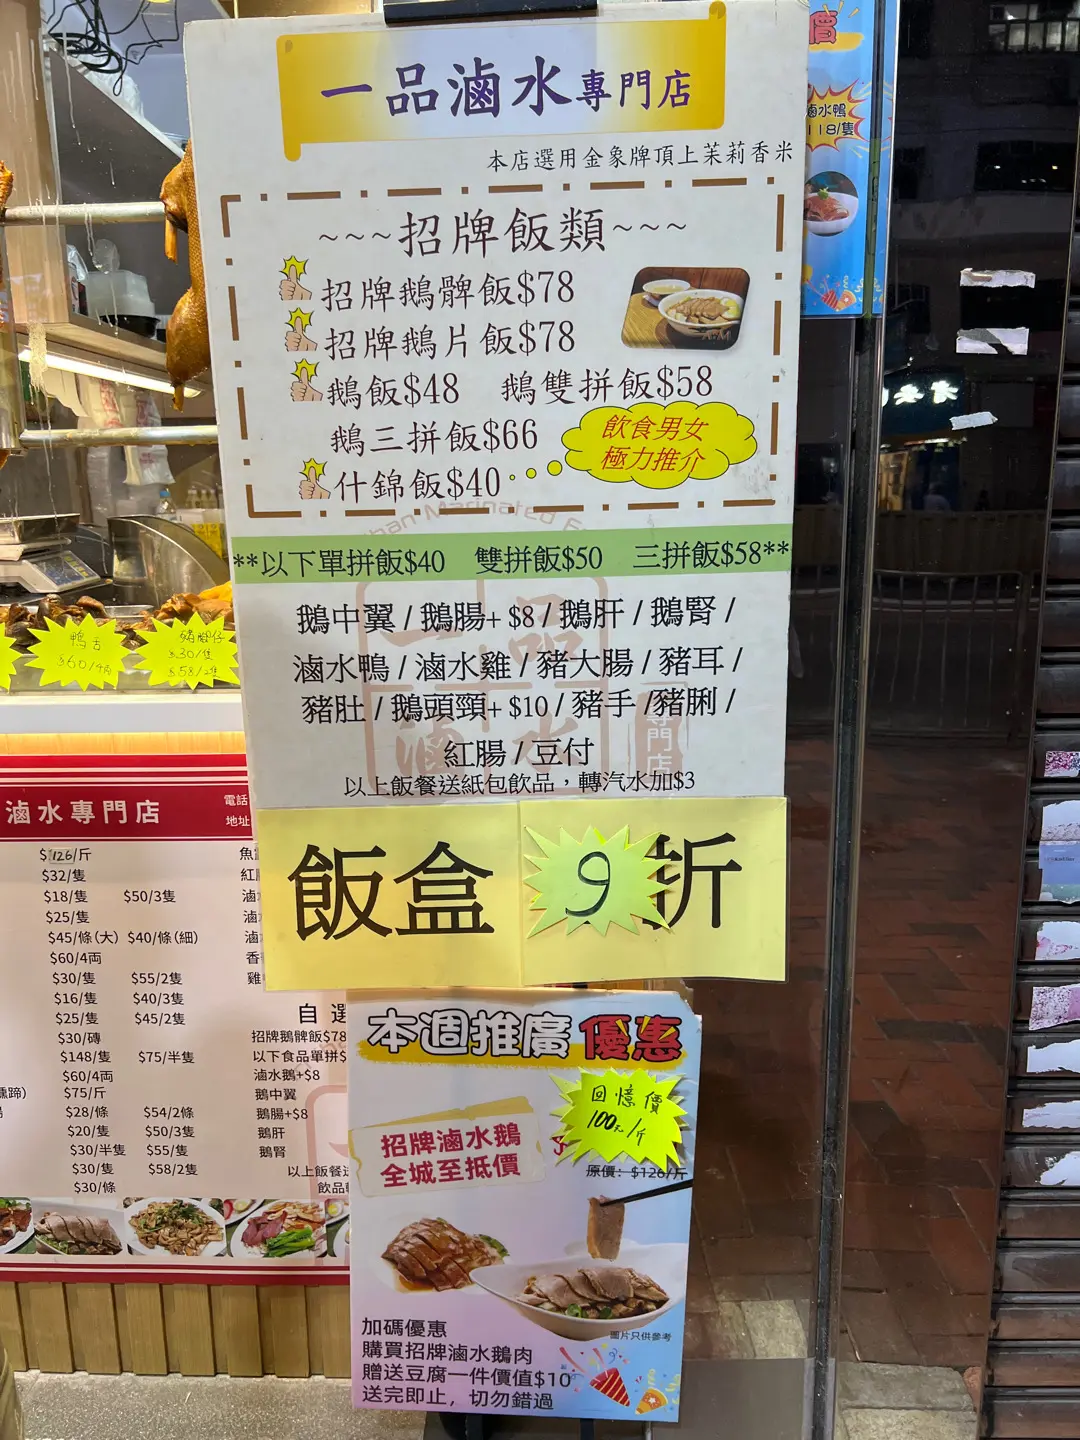 一品滷水專門店
本店選用金象牌頂上茉莉香米
~~~招牌飯類~~~
招牌鵝髀飯$78
招牌鵝片飯$78
鵝飯$48 鵝雙拼飯$58
鵝三拼飯$66
什錦飯$40
飲食男女
極力推介
**以下單拼飯$40 雙拼飯$50 三拼飯$58**
鵝中翼 / 鵝腸+ $8 / 鵝肝 / 鵝腎 /
滷水鴨 / 滷水雞 / 豬大腸 / 豬耳 /
豬肚 / 鵝頭頸+ $10 / 豬手 /豬脷 /
紅腸 / 豆付
以上飯餐送紙包飲品，轉汽水加$3
飯盒 9折
本週推廣優惠
回憶價
100元/斤
招牌滷水鵝
全城至抵價
原價：$126/斤
圖片只供參考
加碼優惠
購買招牌滷水鵝肉
贈送豆腐一件價值$10
送完即止，切勿錯過
價
滷水鴨
118/隻
鴨舌
$60/4両
豬腳仔
$30/隻
$58/2隻
滷水專門店
電話
地址
$126/斤
$32/隻
$18/隻 $50/3隻
$25/隻
$45/條(大) $40/條(細)
$60/4両
$30/隻 $55/2隻
$16/隻 $40/3隻
$25/隻 $45/2隻
$30/磚
$148/隻 $75/半隻
$60/4両
$75/斤
$28/條 $54/2條
$20/隻 $50/3隻
$30/半隻 $55/隻
$30/隻 $58/2隻
$30/條
魚
紅
滷
滷
滷
香
雞
自選
招牌鵝髀飯$78
以下食品單拼$
滷水鵝+$8
鵝中翼
鵝腸+$8
鵝肝
鵝腎
以上飯餐送
飲品